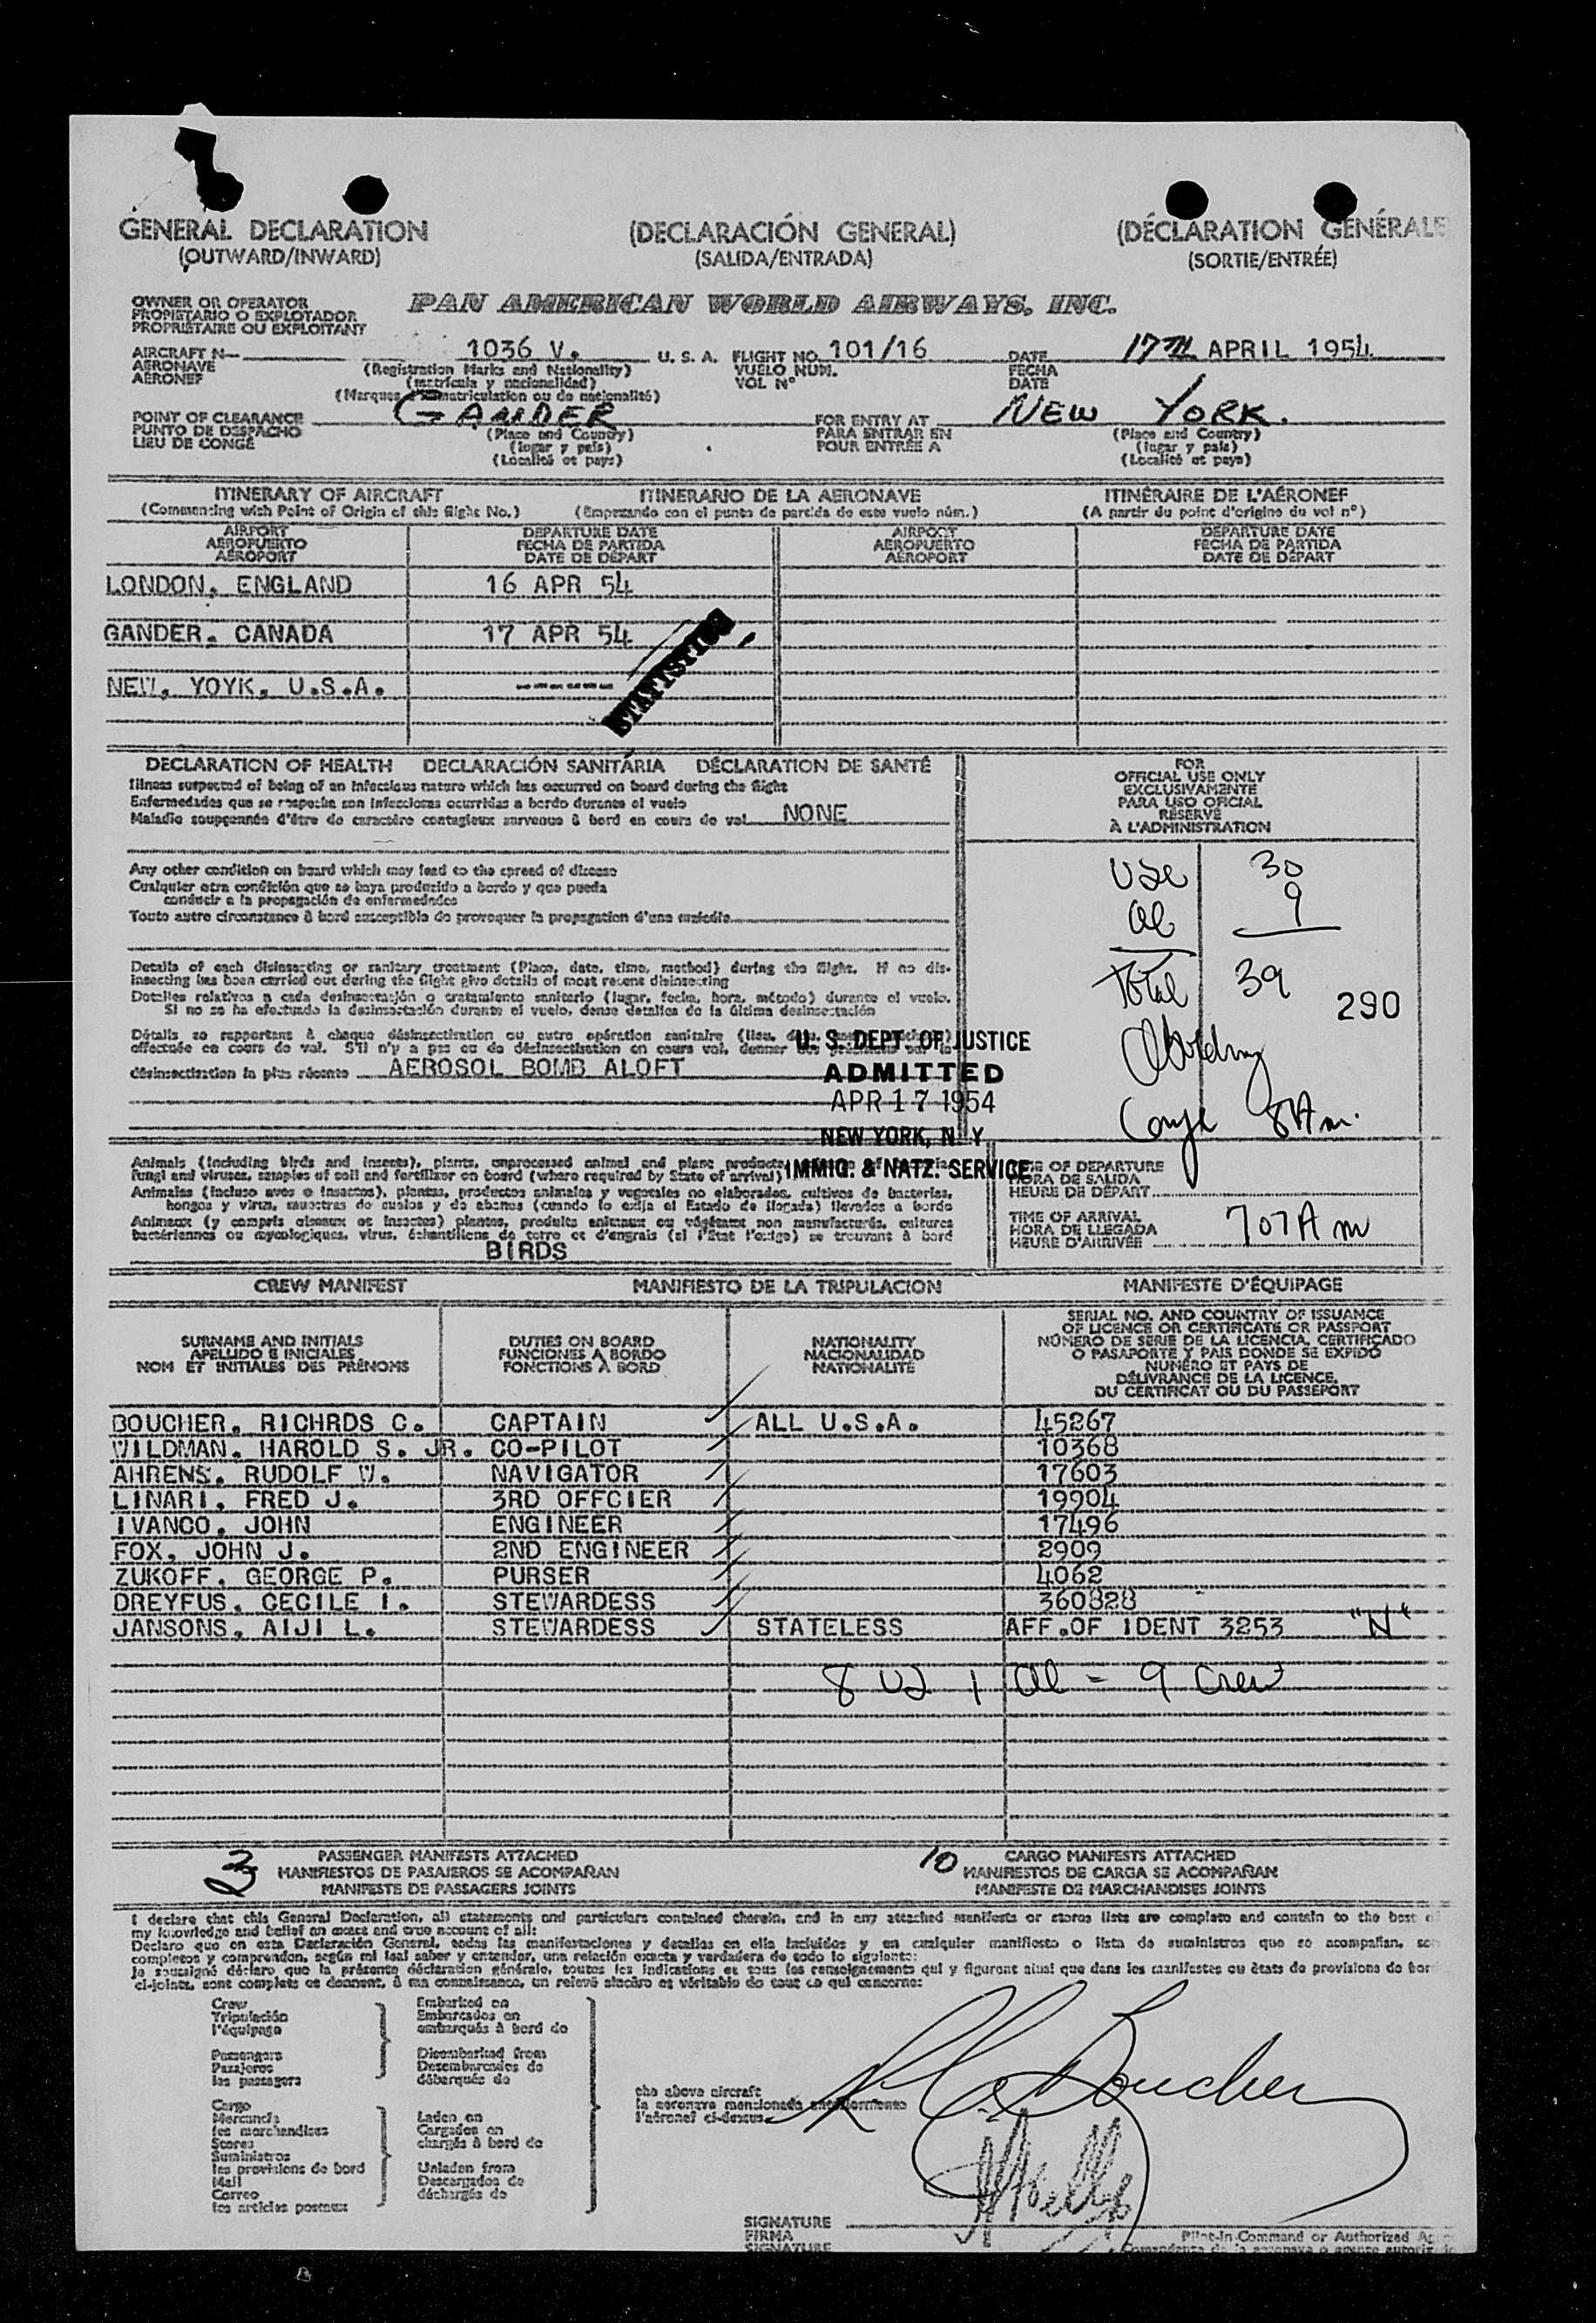 GENERAL DECLARATION (DECLARACIÓN GENERAL) (DÉCLARATION GÉNÉRALE
(OUTWARD/INWARD) (SALIDA/ENTRADA) (SORTIE/ENTRÉE)
OWNER OR OPERATOR
PROPIETARIO O EXPLOTADOR
PROPRIÉTAIRE OU EXPLOITANT
PAN AMERICAN WORLD AIRWAYS, INC.
AIRCRAFT N— 1036 V. U. S. A. FLIGHT NO. 101/16 DATE 17TH APRIL 1954
AERONAVE (Registration Marks and Nationality) VUELO NUM. FECHA
AÉRONEF (matrícula y nacionalidad) VOL Nº DATE
(Marques matriculation ou de nationalité)
POINT OF CLEARANCE GANDER FOR ENTRY AT NEW YORK.
PUNTO DE DESPACHO (Place and Country) PARA ENTRAR EN (Place and Country)
LIEU DE CONGÉ (lugar y país) POUR ENTRÉE A (lugar y país)
(Localité et pays) (Localité et pays)
ITINERARY OF AIRCRAFT ITINERARIO DE LA AERONAVE ITINÉRAIRE DE L'AÉRONEF
(Commencing with Point of Origin of this flight No.) (Empezando con el punto de partida de este vuelo núm.) (A partir du point d'origine du vol nº)
AIRPORT DEPARTURE DATE AIRPORT DEPARTURE DATE
AEROPUERTO FECHA DE PARTIDA AEROPUERTO FECHA DE PARTIDA
AÉROPORT DATE DE DÉPART AÉROPORT DATE DE DÉPART
LONDON, ENGLAND 16 APR 54
GANDER, CANADA 17 APR 54
NEW, YOYK, U.S.A. ------
STATISTICS
DECLARATION OF HEALTH DECLARACIÓN SANITÁRIA DÉCLARATION DE SANTÉ
Illness suspected of being of an infectious nature which has occurred on board during the flight
Enfermedades que se sospecha son infecciosas ocurridas a bordo durante el vuelo
Maladie soupçonnée d'être de caractère contagieux survenue à bord en cours de vol NONE
Any other condition on board which may lead to the spread of disease
Cualquier otra condición que se haya producido a bordo y que pueda
conducir a la propagación de enfermedades
Toute autre circonstance à bord susceptible de provoquer la propagation d'une maladie
Details of each disinsecting or sanitary treatment (Place, date, time, method) during the flight. If no dis-
insecting has been carried out during the flight give details of most recent disinsecting
Detalles relativos a cada desinsectación o tratamiento sanitario (lugar, fecha, hora, método) durante el vuelo.
Si no se ha efectuado la desinsectación durante el vuelo, dense detalles de la última desinsectación
Détails se rapportant à chaque désinsectisation ou autre opération sanitaire (lieu,
effectuée en cours de vol. S'il n'y a pas eu de désinsectisation en cours vol, donner
désinsectisation la plus récente AEROSOL BOMB ALOFT
U. S. DEPT. OF JUSTICE
ADMITTED
APR 17 1954
NEW YORK, N. Y.
IMMIG. & NATZ. SERVICE
FOR
OFFICIAL USE ONLY
EXCLUSIVAMENTE
PARA USO OFICIAL
RÉSERVÉ
À L'ADMINISTRATION
USC 30
al 9
Total 39
290
8 Am.
Animals (including birds and insects), plants, unprocessed animal and plant products,
fungi and viruses, samples of soil and fertilizer on board (where required by State of arrival)
Animales (incluso aves e insectos), plantas, productos animales y vegetales no elaborados, cultivos de bacterias,
hongos y virus, muestras de suelos y de abonos (cuando lo exija el Estado de llegada) llevados a bordo
Animaux (y compris oiseaux et insectes) plantes, produits animaux ou végétaux non manufacturés, cultures
bactériennes ou mycologiques, virus, échantillons de terre et d'engrais (si l'État l'exige) se trouvant à bord
BIRDS
OF DEPARTURE
HORA DE SALIDA
HEURE DE DÉPART
TIME OF ARRIVAL
HORA DE LLEGADA 707 A m
HEURE D'ARRIVÉE
CREW MANIFEST MANIFIESTO DE LA TRIPULACION MANIFESTE D'ÉQUIPAGE
SURNAME AND INITIALS
APELLIDO E INICIALES
NOM ET INITIALES DES PRÉNOMS
DUTIES ON BOARD
FUNCIONES A BORDO
FONCTIONS À BORD
NATIONALITY
NACIONALIDAD
NATIONALITÉ
SERIAL NO. AND COUNTRY OF ISSUANCE
OF LICENCE OR CERTIFICATE OR PASSPORT
NÚMERO DE SERIE DE LA LICENCIA, CERTIFICADO
O PASAPORTE Y PAIS DONDE SE EXPIDÓ
NUMÉRO ET PAYS DE
DÉLIVRANCE DE LA LICENCE,
DU CERTIFICAT OU DU PASSEPORT
BOUCHER, RICHRDS C. CAPTAIN ALL U.S.A. 45267
WILDMAN, HAROLD S. JR. CO-PILOT 10368
AHRENS, RUDOLF W. NAVIGATOR 17603
LINARI, FRED J. 3RD OFFCIER 19904
IVANCO, JOHN ENGINEER 17496
FOX, JOHN J. 2ND ENGINEER 2909
ZUKOFF, GEORGE P. PURSER 4062
DREYFUS, CECILE I. STEWARDESS 360828
JANSONS, AIJI L. STEWARDESS STATELESS AFF.OF IDENT 3253 "N"
8 US 1 al = 9 Crew
3 PASSENGER MANIFESTS ATTACHED 10 CARGO MANIFESTS ATTACHED
MANIFIESTOS DE PASAJEROS SE ACOMPAÑAN MANIFIESTOS DE CARGA SE ACOMPAÑAN
MANIFESTE DE PASSAGERS JOINTS MANIFESTE DE MARCHANDISES JOINTS
I declare that this General Declaration, all statements and particulars contained therein, and in any attached manifests or stores lists are complete and contain to the best
my knowledge and belief an exact and true account of all:
Declaro que en esta Declaración General, todas las manifestaciones y detalles en ella incluidos y en cualquier manifiesto o lista de suministros que se acompañan, son
completos y comprenden, según mi leal saber y entender, una relación exacta y verdadera de todo lo siguiente:
Je soussigné déclare que la présente déclaration générale, toutes les indications et tous les renseignements qui y figurent ainsi que dans les manifestes ou états de provisions de bord
ci-joints, sont complets et donnent, à ma connaissance, un relevé sincère et véritable de tout ce qui concerne:
Crew
Tripulación
l'équipage
Passengers
Pasajeros
les passagers
Embarked on
Embarcados en
embarqués à bord de
Disembarked from
Desembarcados de
débarqués de
Cargo
Mercancía
les marchandises
Stores
Suministros
les provisions de bord
Mail
Correo
les articles postaux
Laden on
Cargados en
chargés à bord de
Unladen from
Descargados de
déchargés de
the above aircraft
la aeronave mencionada anteriormente
l'aéronef ci-dessus
R C Boucher
SIGNATURE
FIRMA
SIGNATURE
Pilot-in-Command or Authorized
Comandante de la aeronave o agente